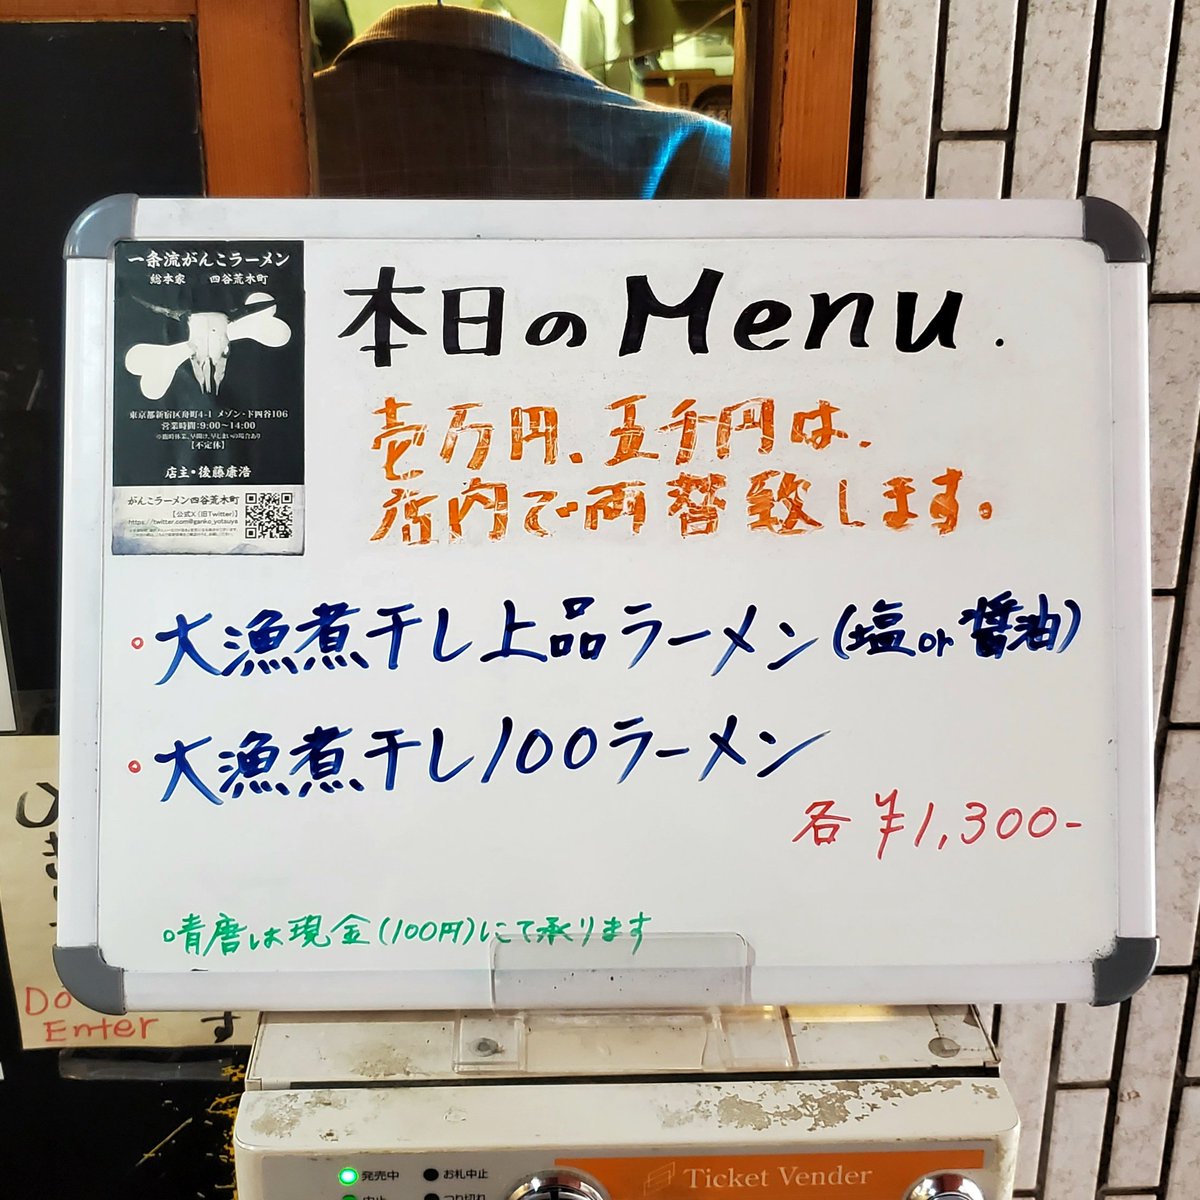 一条流がんこラーメン
総本家 四谷荒木町
東京都新宿区舟町4-1 メゾン・ド四谷106
営業時間:9:00～14:00
※臨時休業、早開け、早じまいの場合あり
【不定休】
店主・後藤康浩
がんこラーメン四谷荒木町
【公式X(旧Twitter)】
https://twitter.com@ganko_yotsuya
本日のMenu.
壱万円、五千円は、
店内で両替致します。
・大漁煮干し上品ラーメン(塩or醤油)
・大漁煮干し100ラーメン
各¥1,300-
○青唐は現金(100円)にて承ります
Do
Enter
す
発売中
お札中止
中止
つり切れ
Ticket Vender